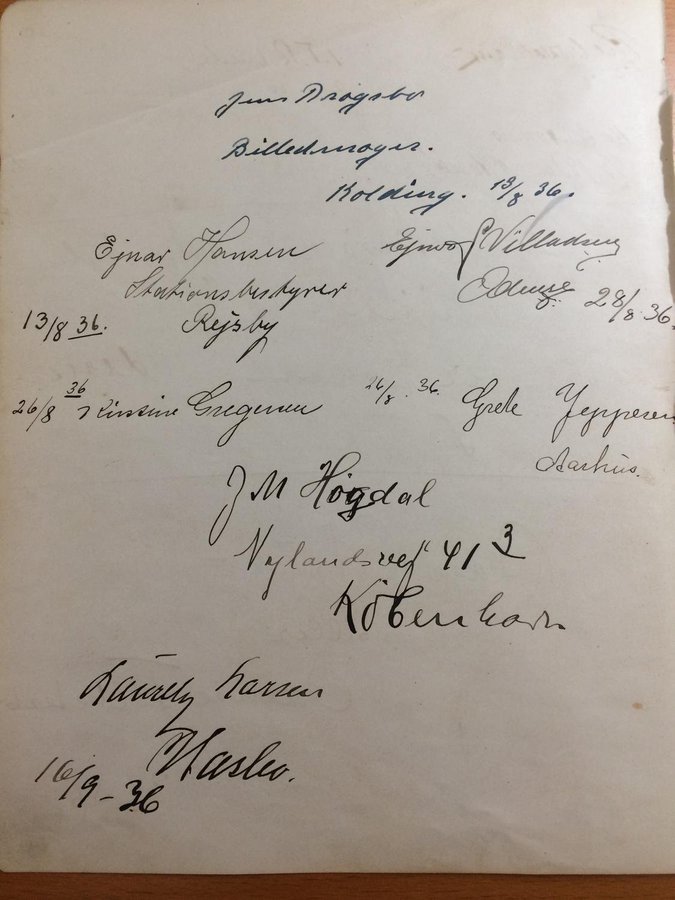 Jens Drogsbo
Billedmager.
Kolding. 13/8 36.
Ejnar Hansen
Stationsbestyrer
13/8 36. Rejsby
Ejnar Villadsen
Odense 28/8 36.
26/8 36 Kirstine Gregersen
26/8 . 36. Grete Jeppesen
Aarhus.
J M Høgdal
Nylandsvej 41 3
København
Lauritz Larsen
16/9-36